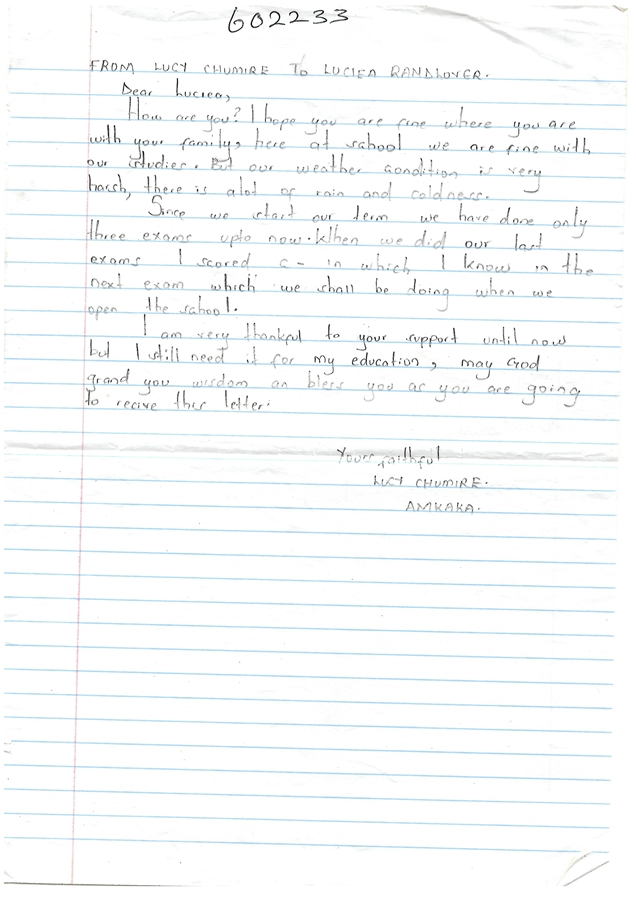 602233
FROM LUCY CHUMIRE TO LUCIEA RANDLOVER.
Dear Luciea,
How are you? I hope you are fine where you are
with your family, here at school we are fine with
our studies. But our weather condition is very
harsh, there is alot of rain and coldness.
Since we start our term we have done only
three exams upto now. When we did our last
exams I scored C- in which I know in the
next exam which we shall be doing when we
open the school.
I am very thankful to your support until now
but I still need it for my education, may God
grand you wisdom an bless you as you are going
to recive this letter.
Yours faithful
LUCY CHUMIRE.
AMKAKA.